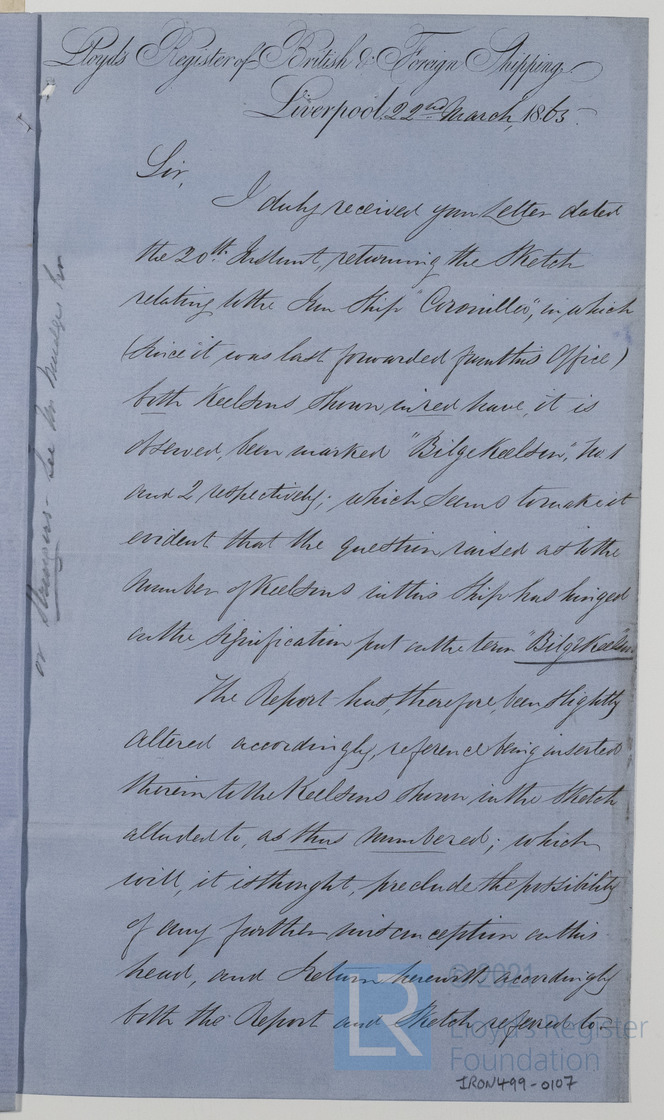 Lloyd's Register of British & Foreign Shipping,
Liverpool, 22nd March, 1863.
Sir,
I duly received your Letter dated
the 20th Instant, returning the Sketch
relating to the Iron Ship "Coronilla", in which
(since it was last forwarded from this Office)
both Keelsons shewn in red have, it is
observed, been marked "Bilge Keelson", No 1
and 2 respectively; which seems to make it
evident that the question raised as to the
number of Keelsons in this Ship has hinged
on the signification put on the term "Bilge Keelson"
The Report has, therefore, been slightly
altered accordingly, reference being inserted
therein to the Keelsons shewn in the Sketch
alluded to, as thus numbered; which
will, it is thought, preclude the possibility
of any further misconception on this
head, and I return herewith accordingly
both the Report and Sketch referred to.
or Stringers - See
© 2021
LR
Lloyd's Register
Foundation
IRON499-0107